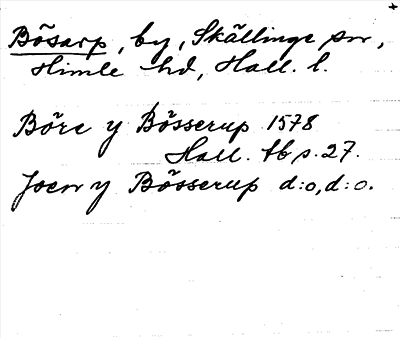 Bösarp, by, Skällinge sn,
Himle hd, Hall. l.
Böre y Bösserup 1578
Hall. tb s. 27.
Joen y Bösserup d:o, d:o.